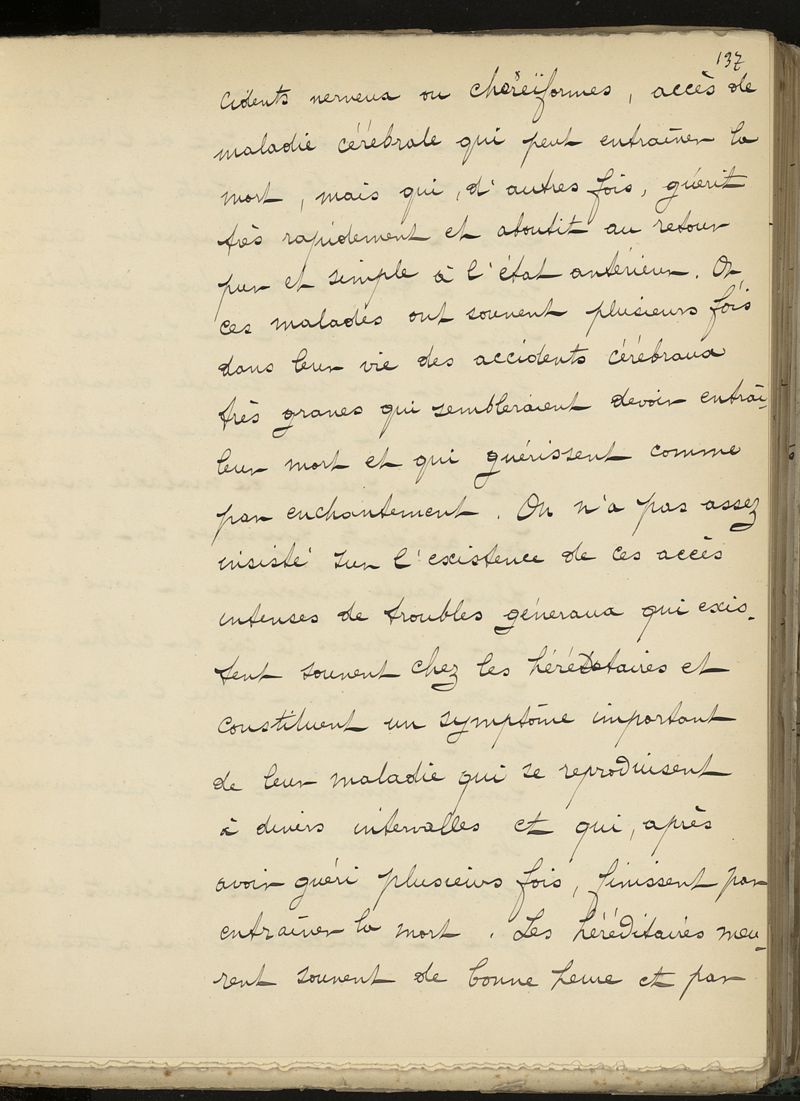 137
cidents nerveux ou choréïformes, accès de
maladie cérébrale qui peut entraîner la
mort, mais qui, d'autres fois, guérit
très rapidement et aboutit au retour
pur et simple à l'état antérieur. Or,
ces malades ont souvent plusieurs fois
dans leur vie des accidents cérébraux
très graves qui sembleraient devoir entraî-
leur mort et qui guérissent comme
par enchantement. On n'a pas assez
insisté sur l'existence de ces accès
intenses de troubles généraux qui exis-
tent souvent chez les héréditaires et
constituent un symptôme important
de leur maladie qui se reproduisent
à divers intervalles et qui, après
avoir guéri plusieurs fois, finissent par
entraîner la mort. Les héréditaires meu-
rent souvent de bonne heure et par